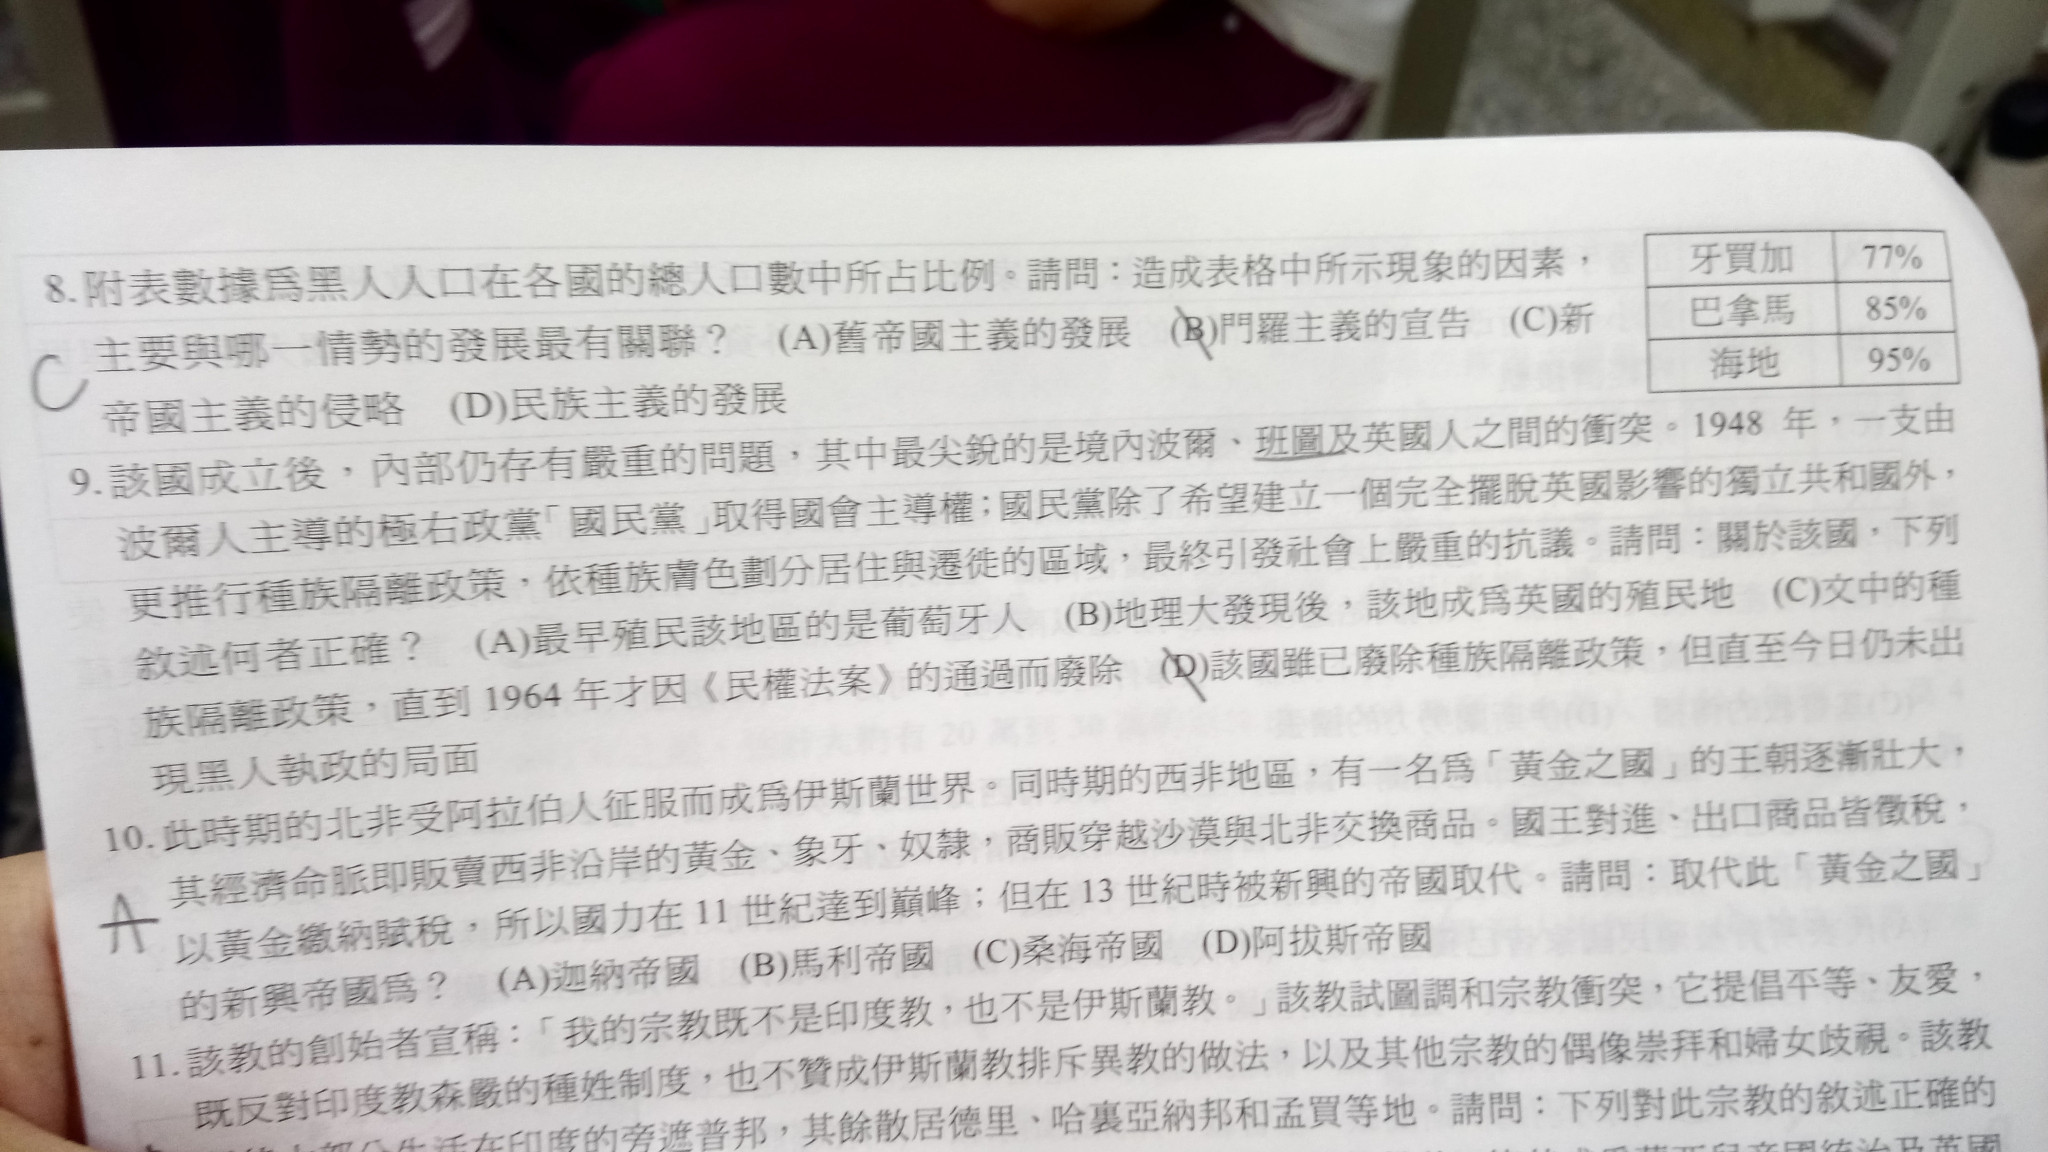 8.附表數據為黑人人口在各國的總人口數中所占比例。請問：造成表格中所示現象的因素，
主要與哪一情勢的發展最有關聯？ (A)舊帝國主義的發展 (B)門羅主義的宣告 (C)新
帝國主義的侵略 (D)民族主義的發展
C
牙買加 77%
巴拿馬 85%
海地 95%
9.該國成立後，內部仍存有嚴重的問題，其中最尖銳的是境內波爾、班圖及英國人之間的衝突。1948 年，一支由
波爾人主導的極右政黨「國民黨」取得國會主導權；國民黨除了希望建立一個完全擺脫英國影響的獨立共和國外，
更推行種族隔離政策，依種族膚色劃分居住與遷徙的區域，最終引發社會上嚴重的抗議。請問：關於該國，下列
敘述何者正確？ (A)最早殖民該地區的是葡萄牙人 (B)地理大發現後，該地成為英國的殖民地 (C)文中的種
族隔離政策，直到 1964 年才因《民權法案》的通過而廢除 (D)該國雖已廢除種族隔離政策，但直至今日仍未出
現黑人執政的局面
10.此時期的北非受阿拉伯人征服而成為伊斯蘭世界。同時期的西非地區，有一名為「黃金之國」的王朝逐漸壯大，
其經濟命脈即販賣西非沿岸的黃金、象牙、奴隸，商販穿越沙漠與北非交換商品。國王對進、出口商品皆徵稅，
以黃金繳納賦稅，所以國力在 11 世紀達到巔峰；但在 13 世紀時被新興的帝國取代。請問：取代此「黃金之國」
的新興帝國為？ (A)迦納帝國 (B)馬利帝國 (C)桑海帝國 (D)阿拔斯帝國
A
11.該教的創始者宣稱：「我的宗教既不是印度教，也不是伊斯蘭教。」該教試圖調和宗教衝突，它提倡平等、友愛，
既反對印度教森嚴的種姓制度，也不贊成伊斯蘭教排斥異教的做法，以及其他宗教的偶像崇拜和婦女歧視。該教
生活在印度的旁遮普邦，其餘散居德里、哈裏亞納邦和孟買等地。請問：下列對此宗教的敘述正確的